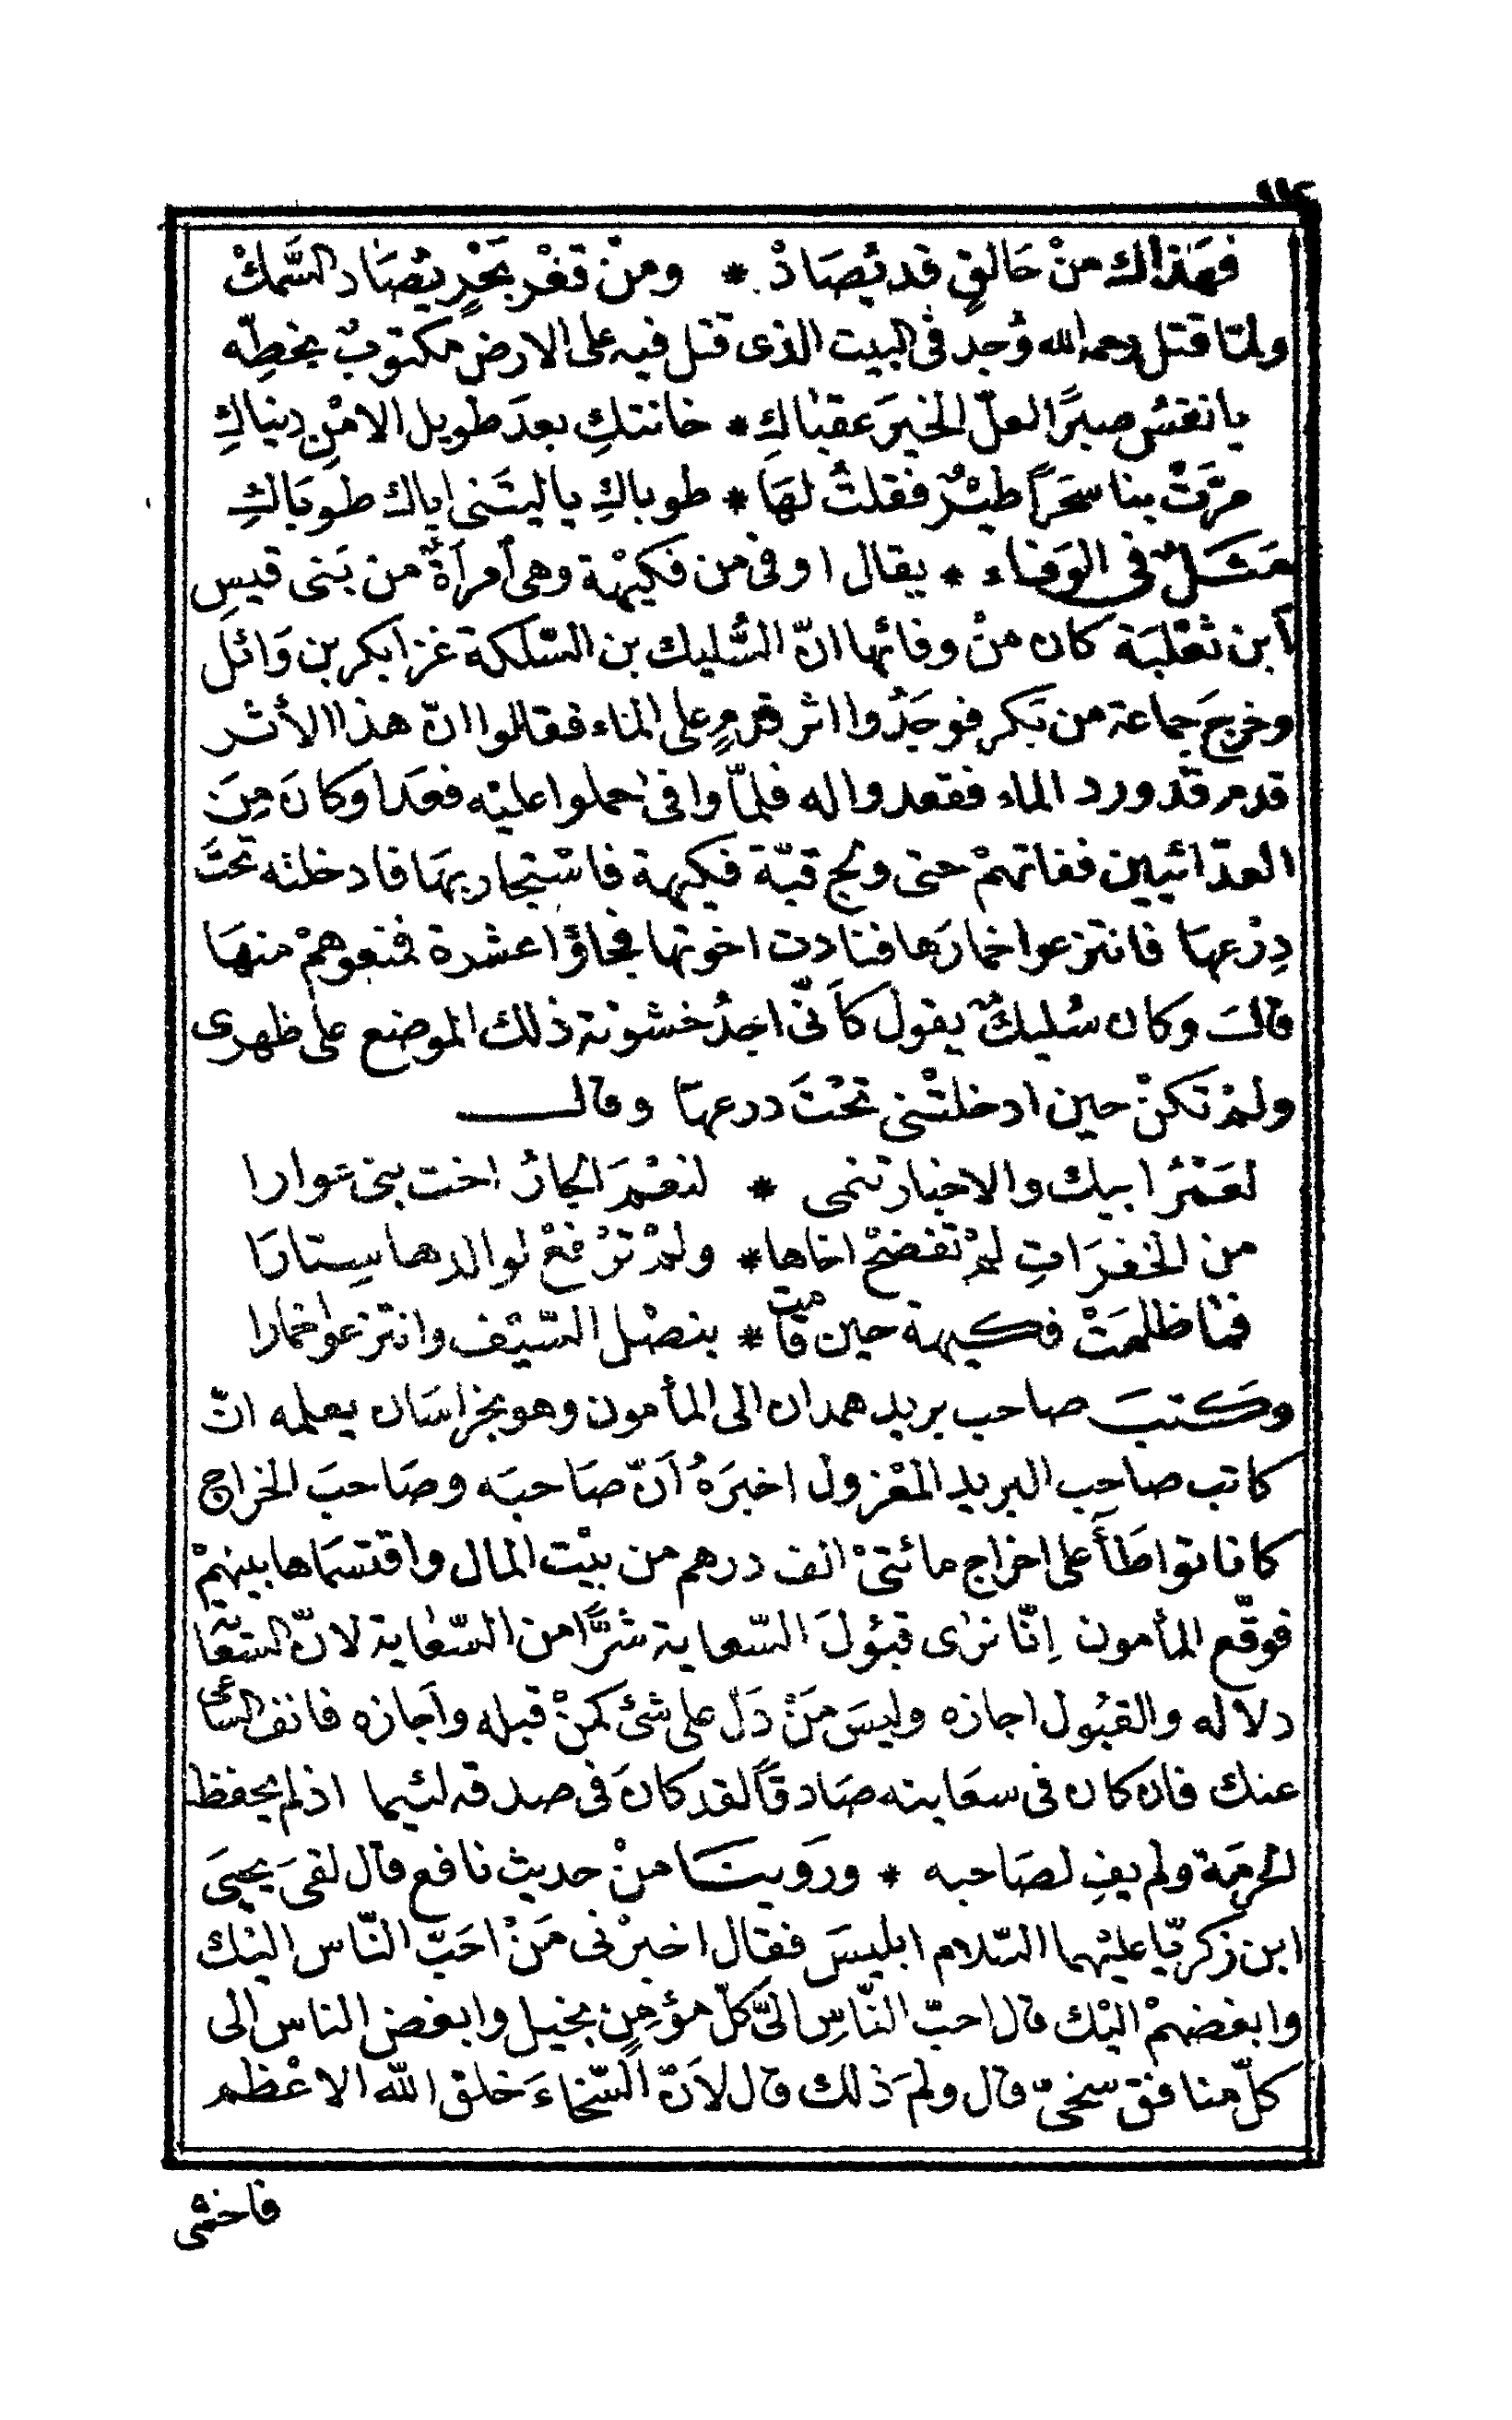 ١١٤
فهَذاك منْ حَالقٍ قد يُصَادْ * ومنْ قعْر بحْرٍ يُصَاد السَّمكْ
ولمّا قتل رحمه الله وُجد في البيت الذى قتل فيه على الارض مكتوبٌ بخطِّه
يا نفسُ صبرًا لعلّ الخيرَ عقباكِ * خانتكِ بعدَ طويل الامْنِ دنياكِ
مرَّتْ بنا سحَرًا طيْرٌ فقلتُ لهَا * طوباكِ يا ليتَنى اياك طوبَاكِ
مَثَلٌ في الوَفاء * يقال اوفى من فكيْهة وهى أمرأةٌ من بَنى قيسِ
ابن ثعْلبَة كان منْ وفائها انّ السُّليك بن السّلكة غزا بكر بن وَائل
وخرجَ جماعة من بَكر فوجَدُوا اثر قدمٍ على الماء فقالوا انّ هذا الأثر
قدم قدْ ورد الماء فقعدوا له فلمّا وافى حملوا عليْه فعَدا وكانَ مِنَ
العدّائيين ففاتهمْ حتى ولج قبّة فكيهة فاسْتجار بهَا فادخلته تحتَ
دِرْعهَا فانتزعوا خمارَها فنادت اخوتها فجاؤا عشرة فمنعوهمْ منهَا
قالَ وكان سُليكٌ يقول كأنّى اجدُ خشونة ذلك الموضع على ظهرى
ولمْ تكنْ حين ادخلتْنى تحْتَ درعهَا وقال
لعَمْرُ ابيك والاخبار تنمى * لنعْمَ الجارُ اخت بنى عوارا
من الخفرَاتِ لمْ تفضحْ اخاها * ولمْ ترْفعْ لوالدها سِتارَا
فمَا ظلمَتْ فكيهة حين قامت * بنصْل السّيْف وانتزعوا خمارا
وكتبَ صاحب بريد همدان الى المأمون وهو بخراسَان يعلمه انّ
كاتب صاحِب البريد المعْزول اخبرَهُ أنّ صَاحبَه وصَاحبَ الخراج
كانا تواطَأَ على اخراج مائتىْ الف درهم من بيْت المال واقتسمَاها بينهمْ
فوقّع المأمون اِنّا نرٰى قبُولَ السّعاية شرًّا من السّعٰاية لانّ السّعَاية
دلاله والقبُول اجازه وليسَ مَنْ دَلّ على شئ كمنْ قبله وأجازه فانف السّاعى
عنك فان كان فى سعَايته صَادقًا لقد كانَ فى صدقه لئيما اذ لم يحفظ
الحرمَة ولم يفِ لصَاحبه * ورَوينَا منْ حديث نافع قال لقىَ يحيىَ
ابن زكريّا عليْهما السّلام ابليسَ فقال اخبرْنى مَنْ احَبّ النّاس اليْك
وابغضهمْ اليْك قال احبّ النّاسِ الىّ كلّ مؤمِنٍ بخيل وابغض الناس الى
كلّ منافق سخىّ قال ولمَ ذلك قال لاَنّ السّخاءَ خلق الله الاعْظم
فاخشى